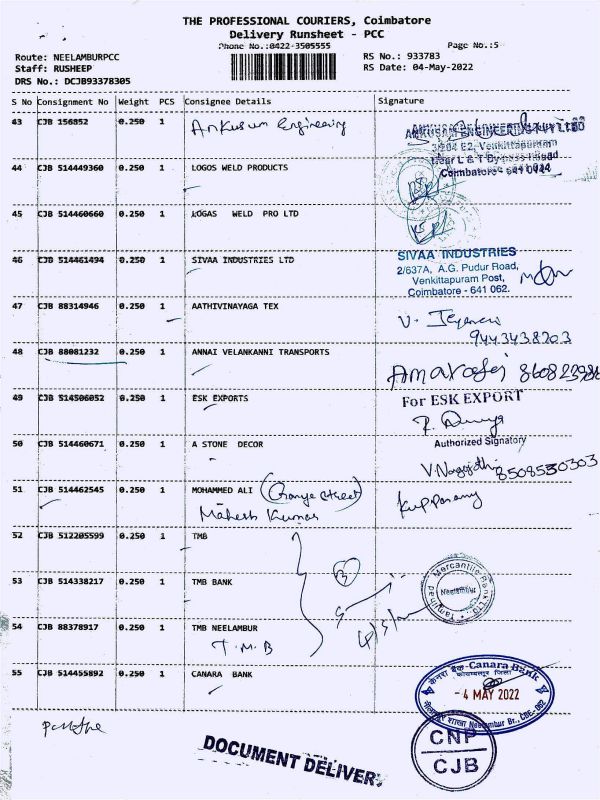 THE PROFESSIONAL COURIERS, Coimbatore
Delivery Runsheet - PCC
Phone No.:0422-3505555
Page No.:5
Route: NEELAMBURPCC
Staff: RUSHEEP
DRS No.: DCJB93378305
RS No.: 933783
RS Date: 04-May-2022
S No Consignment No Weight PCS Consignee Details Signature
43 CJB 156852 0.250 1 Ankusam Engineering
ANKUSAM ENGINEERING PVT LTD
3/204 E2, Venkittapuram
Near L & T Bypass Road
Coimbatore - 641 062
44 CJB 514449360 0.250 1 LOGOS WELD PRODUCTS
45 CJB 514460660 0.250 1 LOGAS WELD PRO LTD
46 CJB 514461494 0.250 1 SIVAA INDUSTRIES LTD
SIVAA INDUSTRIES
2/637A, A.G. Pudur Road,
Venkittapuram Post,
Coimbatore - 641 062.
47 CJB 88314946 0.250 1 AATHIVINAYAGA TEX
9443438203
48 CJB 88081232 0.250 1 ANNAI VELANKANNI TRANSPORTS
49 CJB 514506052 0.250 1 ESK EXPORTS
For ESK EXPORT
Authorized Signatory
50 CJB 514460671 0.250 1 A STONE DECOR
8508530303
51 CJB 514462545 0.250 1 MOHAMMED ALI (Orange Street)
Mahesh Kumar
Kuppasamy
52 CJB 512205599 0.250 1 TMB
53 CJB 514338217 0.250 1 TMB BANK
3
Tamilnad Mercantile Bank Ltd.
Neelambur
54 CJB 88378917 0.250 1 TMB NEELAMBUR
T.M.B
55 CJB 514455892 0.250 1 CANARA BANK
केनरा बैंक Canara Bank
- 4 MAY 2022
Neelambur Br., CBE-062
DOCUMENT DELIVER
CNP
CJB